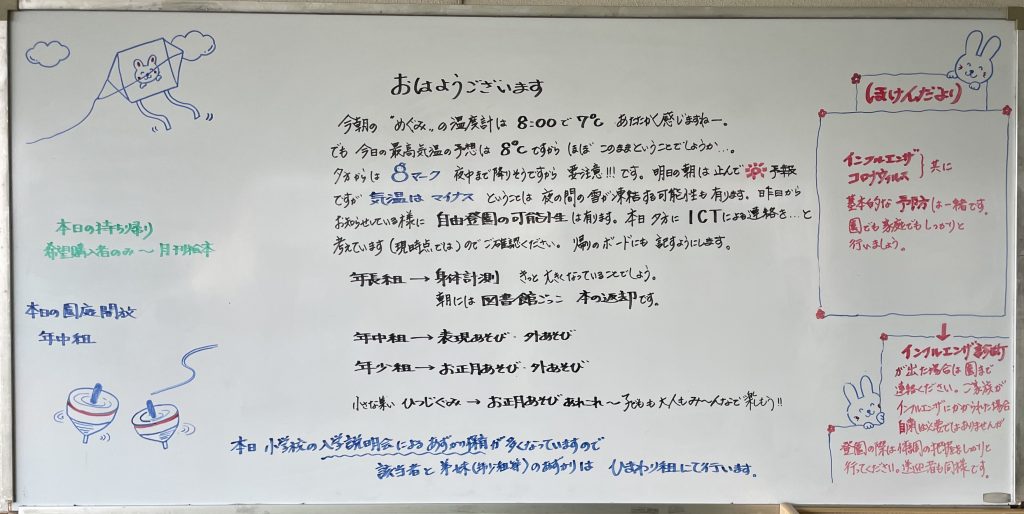 おはようございます
今朝の "めぐみ" の温度計は 8:00で 7℃ あたたかく感じますねー。
でも 今日の最高気温の予想は 8℃ ですから ほぼ このままということでしょうか…。
夕方からは 8マーク 夜中まで降りそうですから 要注意!!! です。明日の朝は 止んで 予報
ですが 気温は マイナス ということは 夜の間の雪が凍結する可能性も有ります。昨日から
お知らせしている様に 自由登園の可能性は有ります。本日 夕方に ICTによる連絡を…と
考えています (現時点では)のでご確認ください。帰りのボードにも 記すようにします。
年長組 → 身体計測 きっと 大きくなっていることでしょう。
朝には 図書館ごっこ 本の返却です。
年中組 → 表現あそび・外あそび
年少組 → お正月あそび・外あそび
小さな集い ひつじぐみ → お正月あそび あれこれ〜 子どもも 大人も み〜んなで 楽しもう!!
本日 小学校の入学説明会による あずかり保育が多くなっていますので
該当者と 弟妹(年少組等)のあずかりは ひまわり組にて行います。
本日の持ち帰り
希望購入者のみ〜 月刊絵本
本日の園庭開放
年中組
ほけんだより
インフルエンザ
コロナウィルス 共に
基本的な 予防方は一緒です。
園でも 家庭でも しっかりと
行いましょう。
インフルエンザ診断
が出た場合は 園まで
連絡ください。ご家族が
インフルエンザにかかられた場合
自粛は必要ではありませんが
登園の際は 体調の把握をしっかりと
行ってください。送迎者も同様です。